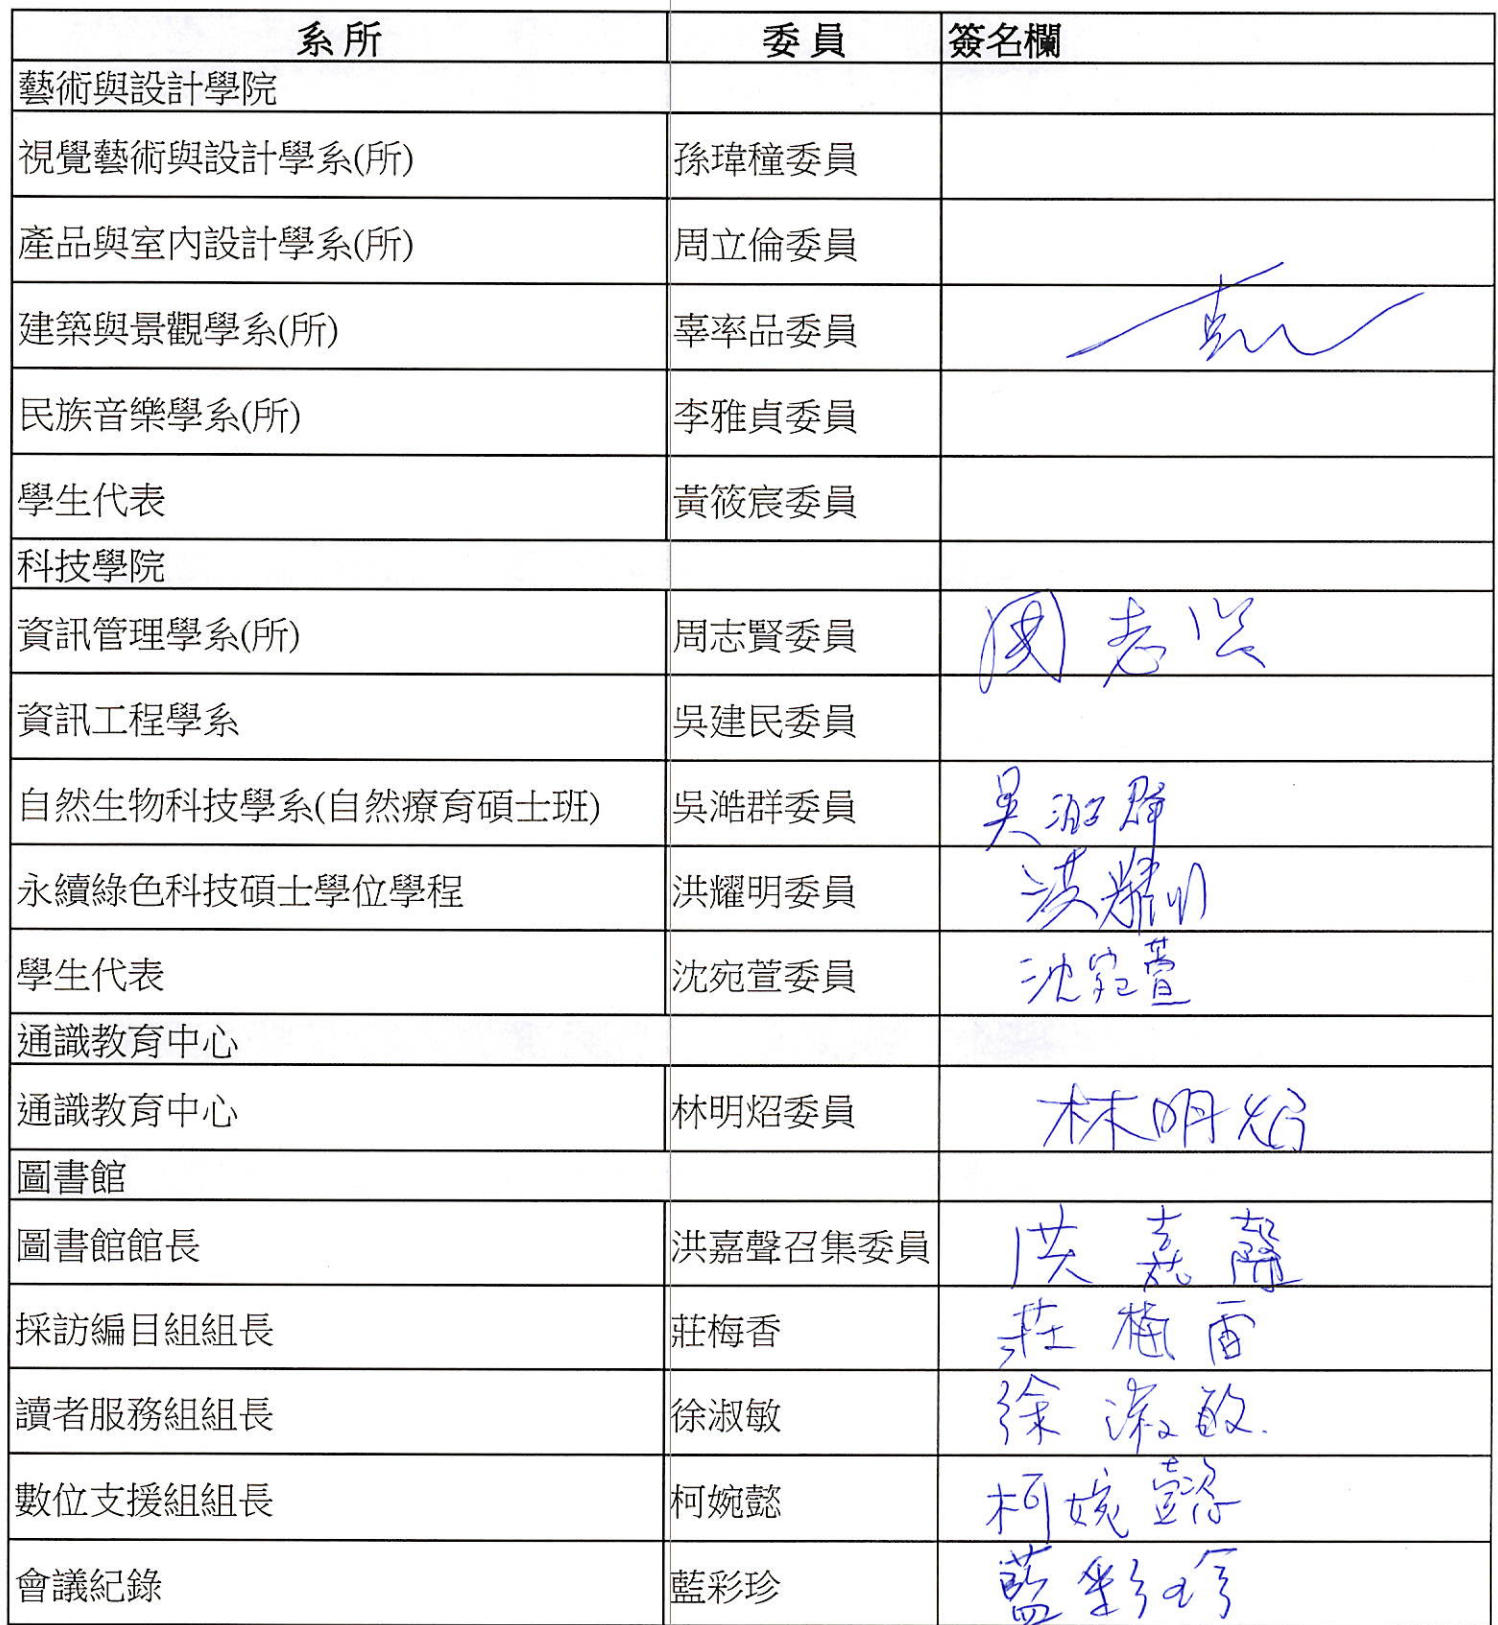 系所 委員 簽名欄
藝術與設計學院
視覺藝術與設計學系(所) 孫瑋穜委員
產品與室內設計學系(所) 周立倫委員
建築與景觀學系(所) 辜率品委員
民族音樂學系(所) 李雅貞委員
學生代表 黃筱宸委員
科技學院
資訊管理學系(所) 周志賢委員 周志賢
資訊工程學系 吳建民委員
自然生物科技學系(自然療育碩士班) 吳澔群委員 吳澔群
永續綠色科技碩士學位學程 洪耀明委員 洪耀明
學生代表 沈宛萱委員 沈宛萱
通識教育中心
通識教育中心 林明炤委員 林明炤
圖書館
圖書館館長 洪嘉聲召集委員 洪嘉聲
採訪編目組組長 莊梅香 莊梅香
讀者服務組組長 徐淑敏 徐淑敏
數位支援組組長 柯婉懿 柯婉懿
會議紀錄 藍彩珍 藍彩珍